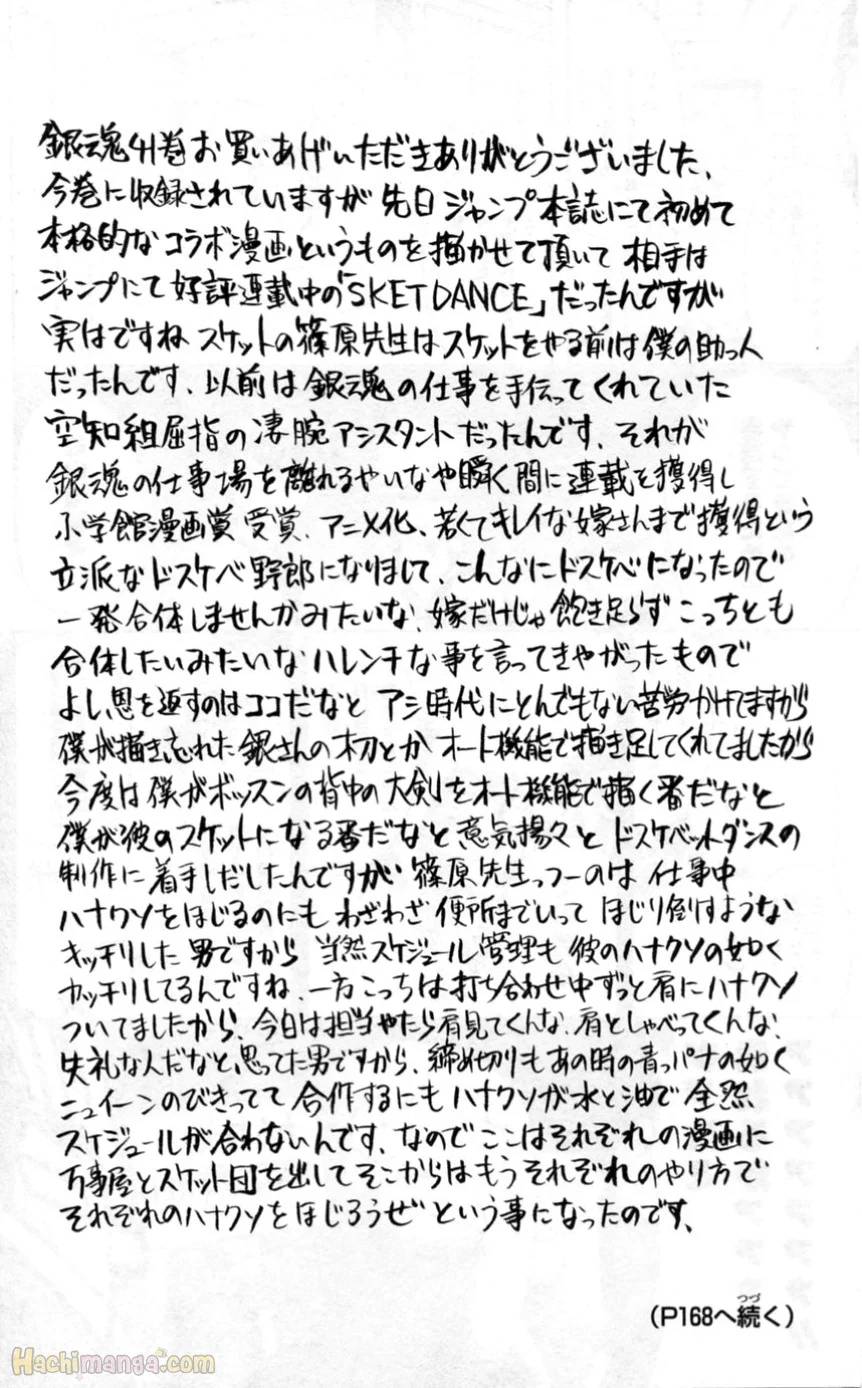 銀魂41巻お買いあげいただきありがとうございました、
今巻に収録されていますが先日ジャンプ本誌にて初めて
本格的なコラボ漫画というものを描かせて頂いて相手は
ジャンプにて好評連載中の「SKET DANCE」だったんですが
実はですね スケットの篠原先生はスケットをやる前は僕の助っ人
だったんです、以前は銀魂の仕事を手伝ってくれていた
空知組屈指の凄腕アシスタントだったんです、それが
銀魂の仕事場を離れるやいなや瞬く間に連載を獲得し
小学館漫画賞受賞、アニメ化、若くてキレイな嫁さんまで獲得という
立派なドスケベ野郎になりまして、こんなにドスケベになったので
一発合体しませんかみたいな、嫁だけじゃ飽き足らずこっちとも
合体したいみたいなハレンチな事を言ってきやがったもので
よし、恩を返すのはココだなと アシ時代にとんでもない苦労かけてますから
僕が描き忘れた銀さんの木刀とかオート機能で描き足してくれてましたから
今度は僕がボッスンの背中の大剣をオート機能で描く番だなと
僕が彼のスケットになる番だなと意気揚々とドスケベットダンスの
制作に着手しだしたんですが 篠原先生っつーのは仕事中
ハナクソをほじるのにもわざわざ便所までいってほじり倒すような
キッチリした男ですから 当然スケジュール管理も彼のハナクソの如く
カッチリしてるんですね、一方こっちは打ち合わせ中ずっと肩にハナクソ
ついてましたから、今日は担当やたら肩見てくんな、肩としゃべってくんな、
失礼な人だなと思ってた男ですから、締め切りもあの時の青っパナの如く
ニュイーンのびきってて 合作するにもハナクソが水と油で全然
スケジュールが合わないんです、なのでここはそれぞれの漫画に
万事屋とスケット団を出してそこからはもうそれぞれのやり方で
それぞれのハナクソをほじろうぜという事になったのです、
(P168へ続く)
つづ
Hachimanga.com